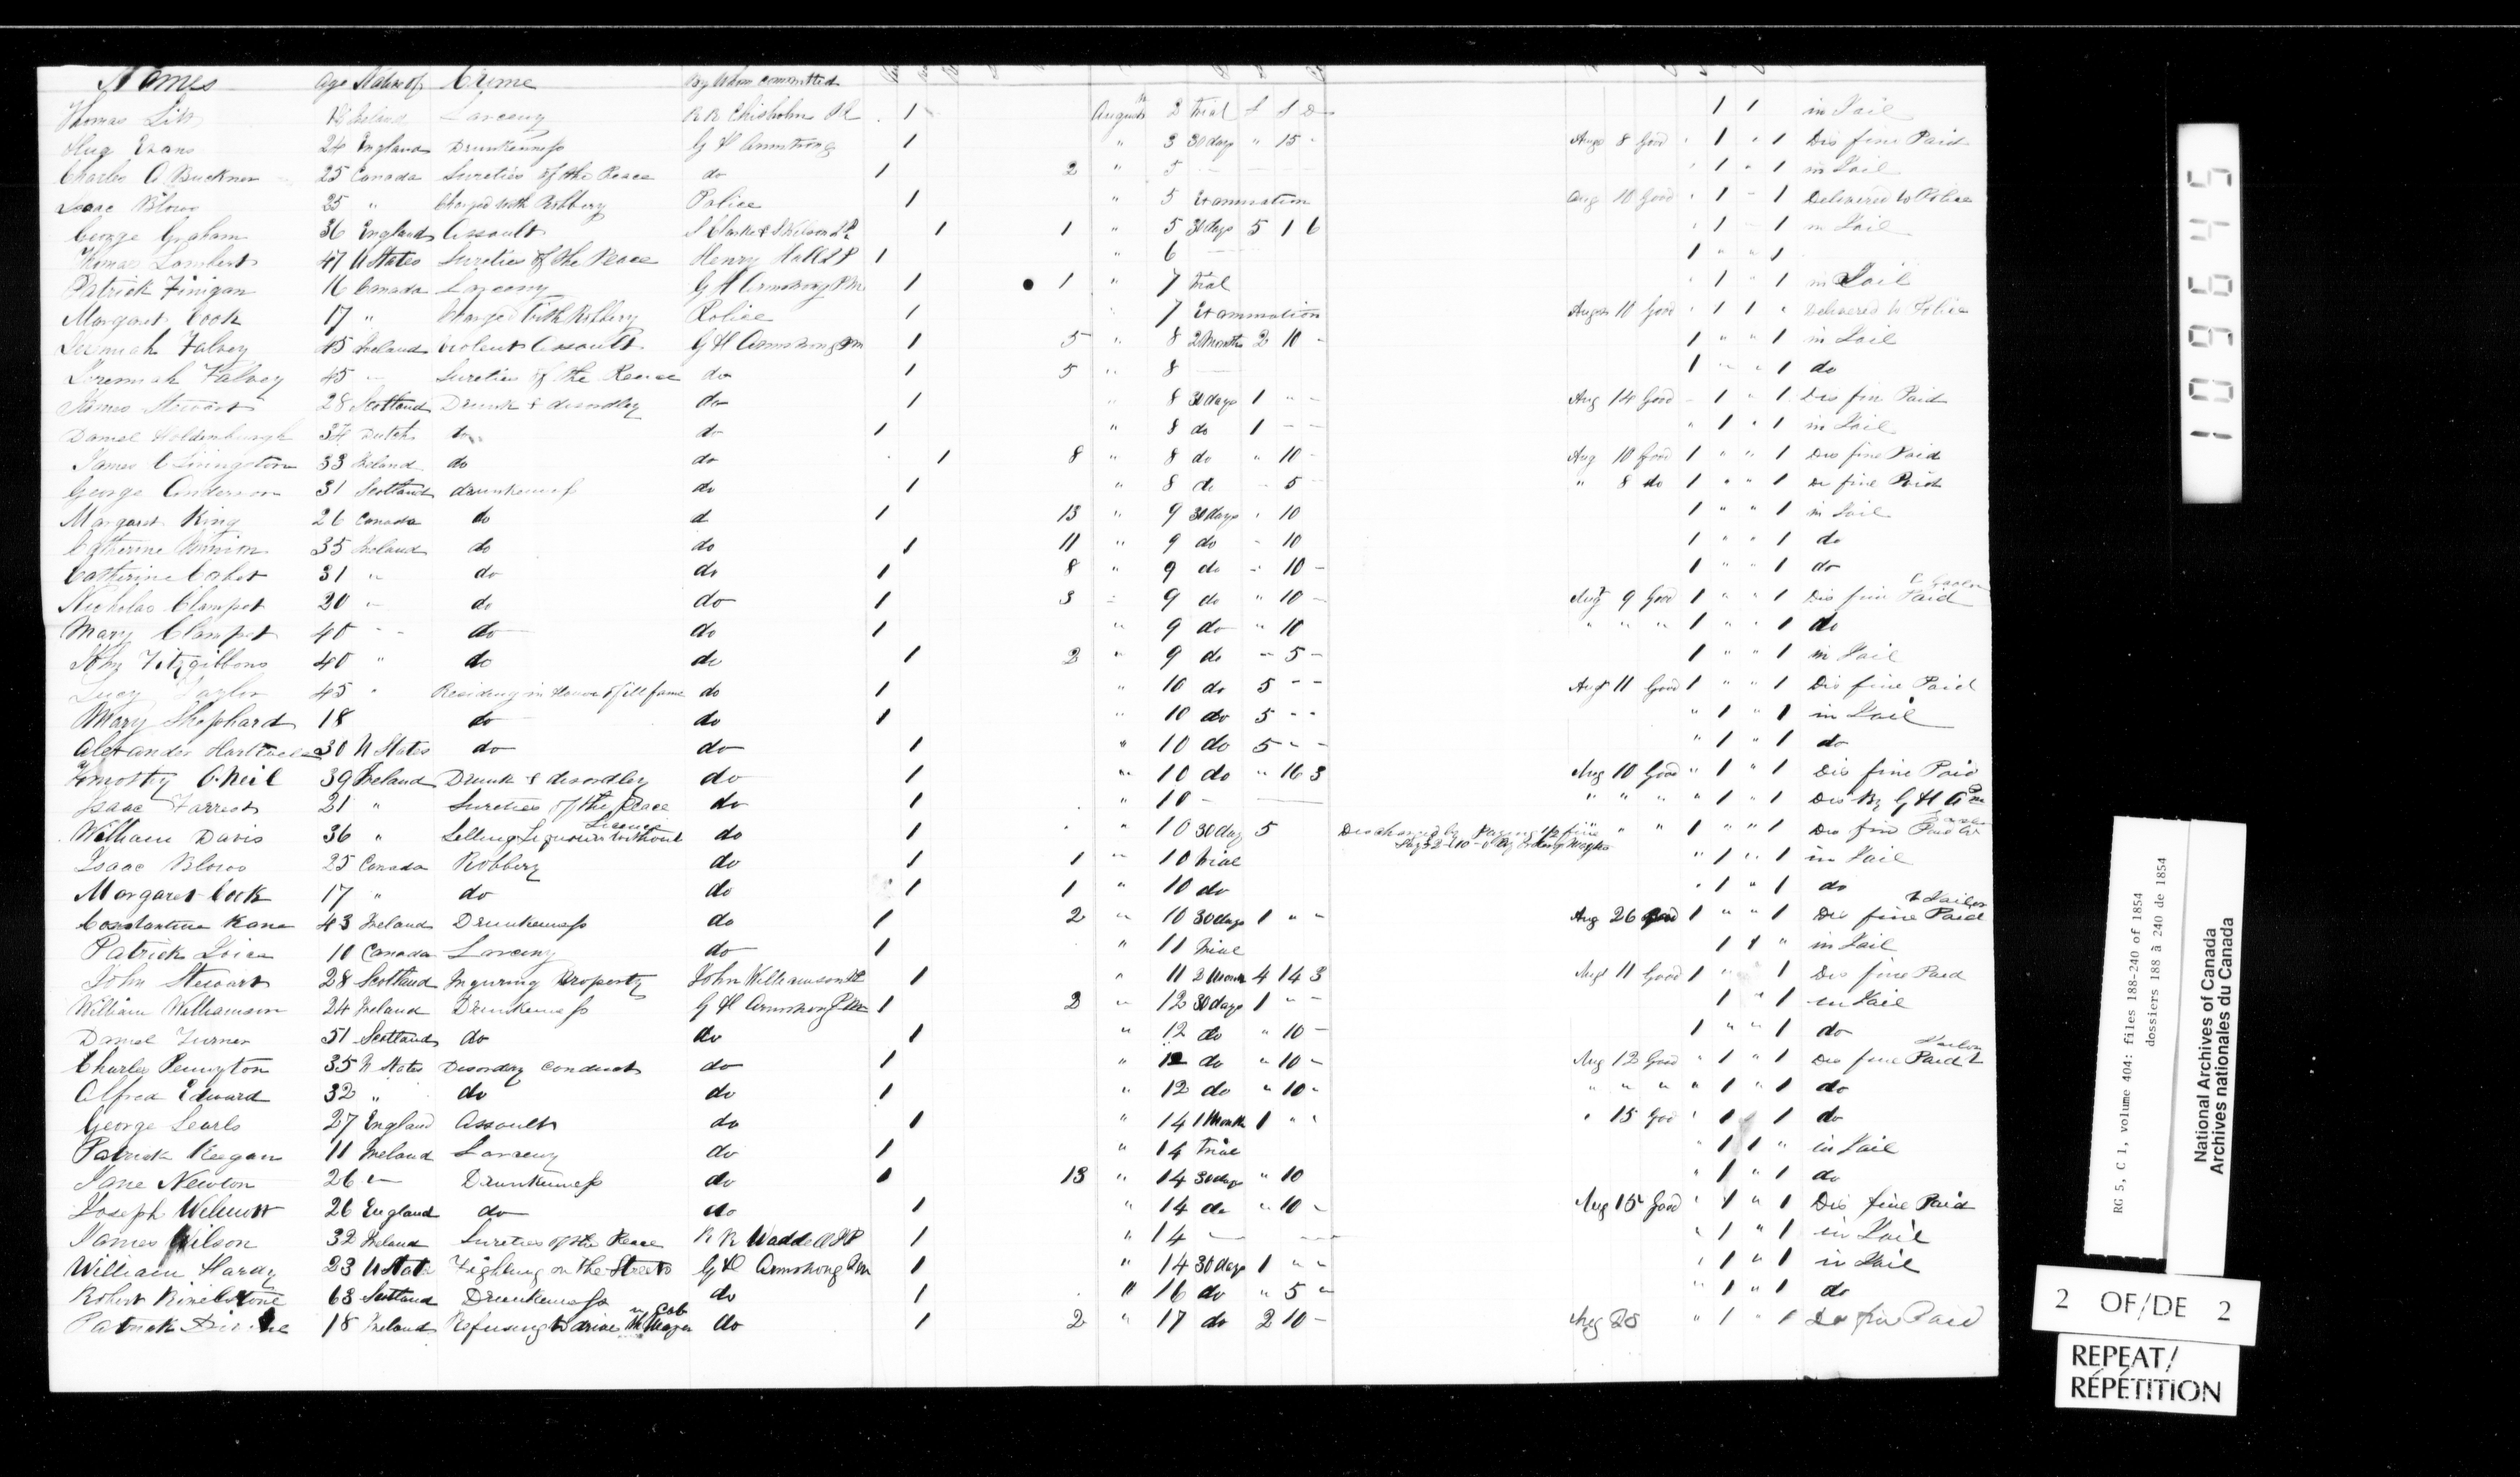 Names age Native of Crime By Whom committed
Thomas 18 Ireland Larceny R R Chisholm 1 August 2 Trial £ S D 1 1 in Jail
Hug Evans 24 England Drunkenness G H Armstrong 1 " 3 30 days " 15 - Aug 8 Good " 1 " 1 Dis fine Paid
Charles A Buckner 25 Canada Sureties of the Peace do 1 2 " 5 - " 1 " 1 in Jail
Isaac Blows 25 " Charged with Robbery Police 1 " 5 Examination Aug 10 Good " 1 - 1 Delivered to Police
George Graham 36 England Assault 1 1 " 5 30 days 5 1 6 " 1 - 1 in Jail
Thomas Lambert 47 U States Sureties of the Peace Henry Hall J P 1 " 6 - 1 " " 1
Patrick Finigan 16 Canada Larceny G H Armstrong P M 1 1 " 7 Trial " 1 " 1 in Jail
Margaret Cook 17 " Charged with Robbery Police 1 " 7 Examination August 10 Good " 1 1 " Delivered to Police
Jeremiah Falvey 45 Ireland violent Assault G H Armstrong P M 1 5 " 8 2 Months 2 10 - 1 " " 1 in Jail
Jeremiah Falvey 45 - Sureties of the Peace do 1 5 " 8 - 1 " " 1 do
James Stewart 28 Scotland Drunk & disordley do 1 " 8 30 days 1 " - Aug 14 Good - 1 " 1 Dis fine Paid
Daniel Holdenburgh 34 Dutch do do 1 " 8 do 1 - - " 1 " 1 in Jail
James C Livingston 33 Ireland do do 1 8 " 8 do " 10 - Aug 10 Good 1 " " 1 Dis fine Paid
George Anderson 31 Scotland drunkenness do 1 " 8 do - 5 - " 8 do 1 " " 1 Dis fine Paid
Margaret King 26 Canada do d 1 13 " 9 30 days " 10 1 " " 1 in Jail
Catherine 35 Ireland do do 1 11 " 9 do - 10 1 " " 1 do
Catherine Cahot 31 " do do 1 8 " 9 do - 10 - 1 " " 1 do
Nicholas Clampet 20 " do do 1 3 " 9 do " 10 - Aug 9 Good 1 " " 1 Dis fine Paid
Mary Clampet 40 " do do 1 " 9 do " 10 " " " 1 " " 1 do
John Fitzgibbons 40 " do do 1 2 " 9 do - 5 - 1 " " 1 in Jail
Lucy Taylor 45 " Residing in House of ill fame do 1 " 10 do 5 - - Aug 11 Good 1 " " 1 Dis fine Paid
Mary Shephard 18 do do 1 " 10 do 5 - - " 1 " 1 in Jail
Alexander 30 U States do do 1 " 10 do 5 - - " 1 " 1 do
Timothy O Neil 39 Ireland Drunk & disordley do 1 " 10 do " 16 3 Aug 10 Good " 1 " 1 Dis fine Paid
Isaac Farrest 21 " Sureties of the Peace do 1 " 10 - " " " " 1 " 1 Dis By G H A
William Davis 36 " Selling Liquour without Licence do 1 " 10 30 day 5 Discharged by Paying 1/2 fine " " 1 " " 1 Dis fine Paid
Isaac Blows 25 Canada Robbery do 1 1 " 10 Trial " 1 " 1 in Jail
Margaret Cook 17 " do do 1 1 " 10 do " 1 " 1 do
Constantine Kane 43 Ireland Drunkenness do 1 2 " 10 30 days 1 " - Aug 26 Good 1 " " 1 Dis fine Paid
Patrick 10 Canada Larceny do 1 " 11 Trial 1 1 " in Jail
John Stewart 28 Scotland Inguring Property John Williamson 1 " 11 2 4 14 3 Aug 11 Good 1 " 1 Dis fine Paid
William Williamson 24 Ireland Drunkenness G H Armstrong P M 1 2 " 12 30 days 1 " - 1 " 1 in Jail
Daniel Turner 51 Scotland do do 1 " 12 do " 10 - 1 " " 1 do
Charles Penington 35 U States Disorday conduct do 1 " 12 do " 10 - Aug 12 Good " 1 " 1 Dis fine Paid
Alfred Edward 32 " do do 1 " 12 do " 10 - " " " " 1 " 1 do
George Searls 27 England Assault do 1 " 14 1 Month 1 " " " 15 Goo " 1 1 do
Patrick Keegan 11 Ireland Larceny do 1 " 14 Trial " 1 1 " in Jail
Jane Newton 26 " Drunkenness do 1 13 " 14 30 days " 10 " 1 " 1 do
Joseph Wilmott 26 England do do 1 " 14 do " 10 - Aug 15 Good " 1 " 1 Dis fine Paid
James Wilson 32 Ireland Sureties of the Peace R R Waddell J P 1 " 14 - " 1 " 1 in Jail
William Hardy 23 U State Fighting on the Streets G H Armstrong P M 1 " 14 30 days 1 " " " 1 " 1 in Jail
Robert 63 Scotland Drunkenness do 1 " 16 do " 5 " " 1 " 1 do
Patrick 18 Ireland Refusing to drive the Mayor in Cab do 1 2 " 17 do 2 10 - Aug 25 " 1 " 1 Dis fine Paid
109645
RG 5, C 1, volume 404: files 188-240 of 1854
dossiers 188 à 240 de 1854
National Archives of Canada
Archives nationales du Canada
2 OF/DE 2
REPEAT/
RÉPÉTITION